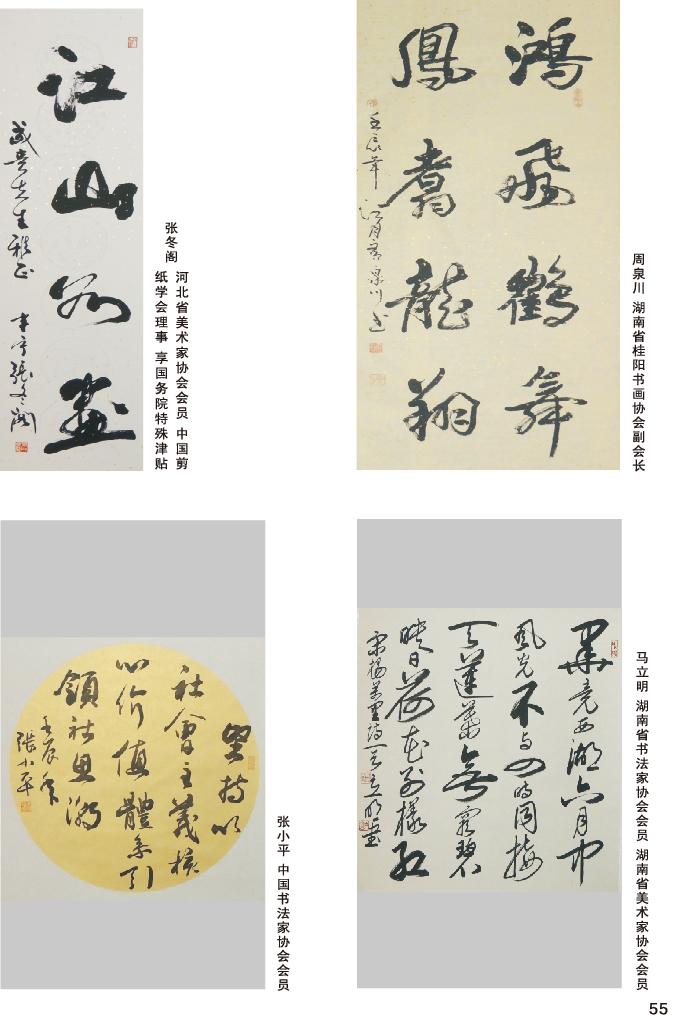 江山如畫
贵先生雅正 丰宁张冬阁
张冬阁
河北省美术家协会会员 中国剪
纸学会理事 享国务院特殊津贴
鴻飛鶴舞
鳳翥龍翔
壬辰年 泉川书
周泉川 湖南省桂阳书画协会副会长
坚持以
社會主義核
心价值體系引
領社思潮
壬辰年
張小平
张小平 中国书法家协会会员
畢竟西湖六月中
風光不与四時同接
天蓮葉無窮碧
映日荷花别樣红
宋楊萬里詩一首 立明書
马立明 湖南省书法家协会会员 湖南省美术家协会会员
55